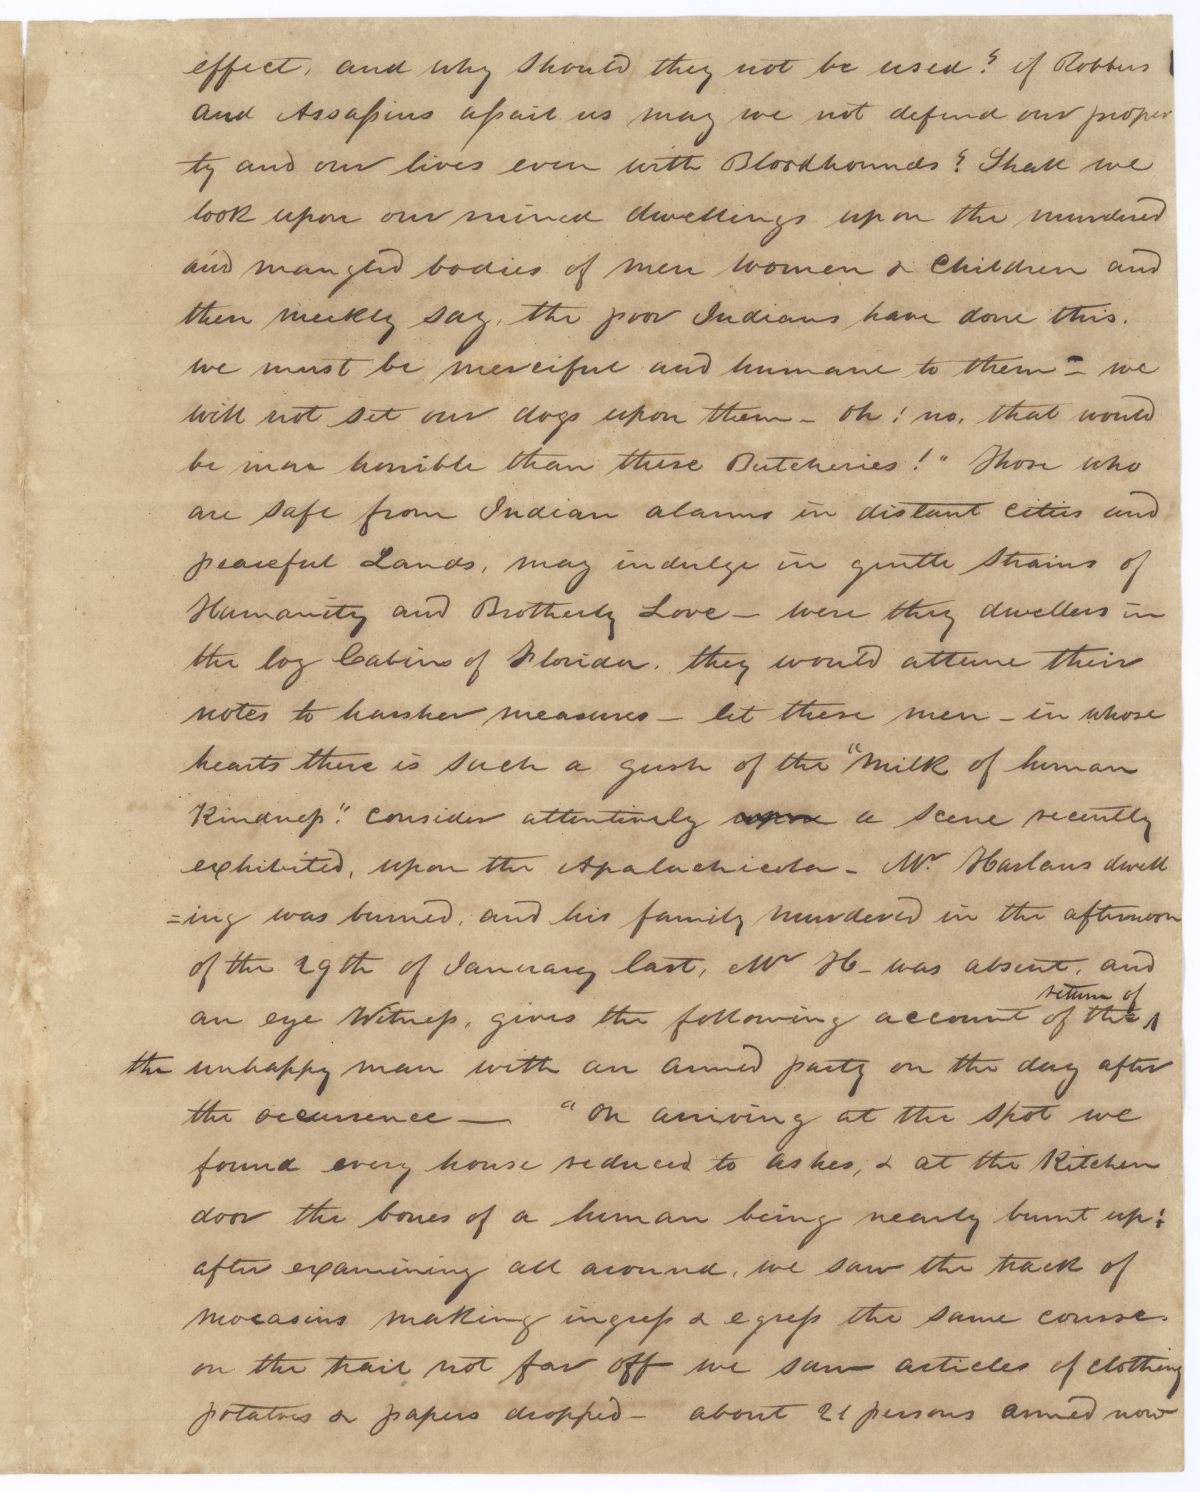 effect, and why should they not be used? if Robbers
and Assassins assail us may we not defend our proper
ty and our lives even with Bloodhounds? Shall we
look upon our ruined dwellings upon the murdered
and mangled bodies of men women & Children and
then meekly say, the poor Indians have done this.
we must be merciful and humane to them - we
will not set our dogs upon them - oh! no, that would
be more horrible than these Butcheries!" Those who
are safe from Indian alarms in distant cities and
peaceful Lands, may indulge in gentle strains of
Humanity and Brotherly Love - were they dwellers in
the log Cabins of Florida, they would attune their
notes to harsher measures - let these men - in whose
hearts there is such a gush of the "milk of human
Kindness". consider attentively upon a scene recently
exhibited, upon the Apalachicola - Mr. Harlans dwell
=ing was burned, and his family murdered in the afternoon
of the 29th of January last, Mr H- was absent, and
an eye Witness, gives the following account of the return of
the unhappy man with an armed party on the day after
the occurrence - "On arriving at the spot we
found every house reduced to ashes, & at the Kitchen
door the bones of a human being nearly burnt up:
after examining all around, we saw the track of
mocasins making ingress & egress the same course.
on the trail not far off we saw articles of clothing
potatoes & papers dropped - about 21 persons armed now